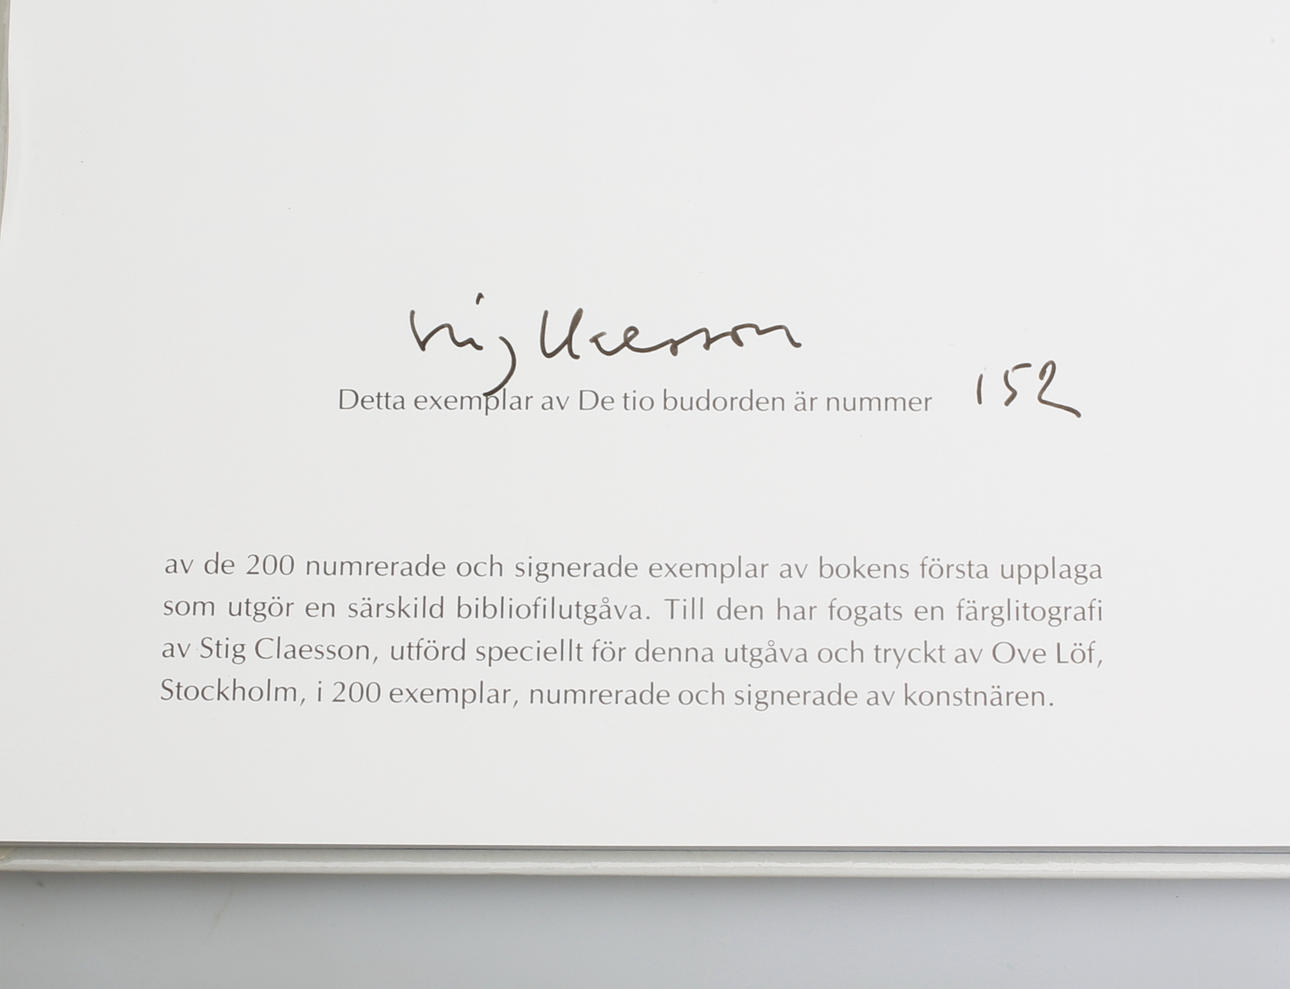 Stig Claesson
Detta exemplar av De tio budorden är nummer 152
av de 200 numrerade och signerade exemplar av bokens första upplaga
som utgör en särskild bibliofilutgåva. Till den har fogats en färglitografi
av Stig Claesson, utförd speciellt för denna utgåva och tryckt av Ove Löf,
Stockholm, i 200 exemplar, numrerade och signerade av konstnären.